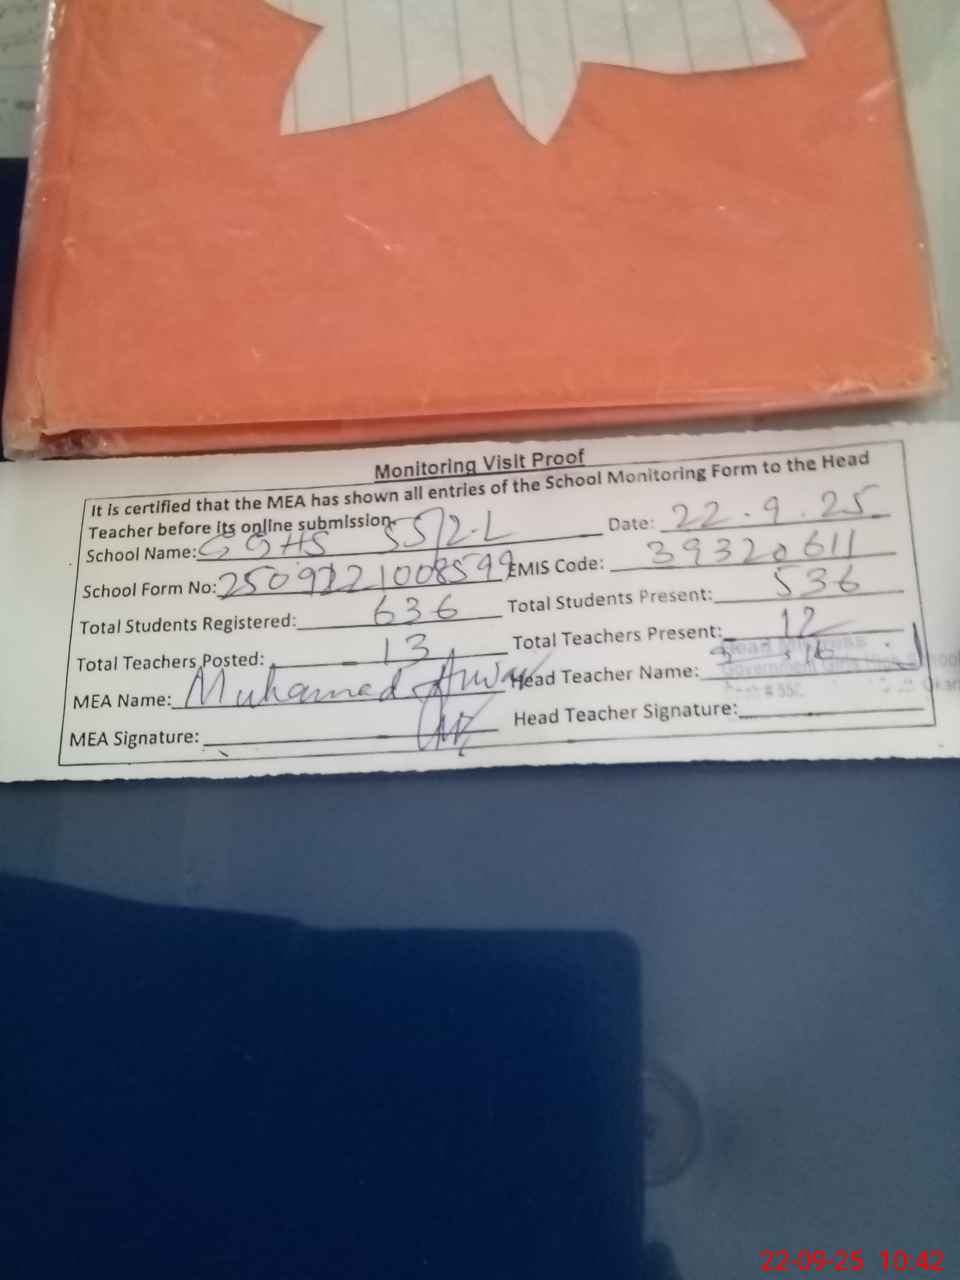 Monitoring Visit Proof
It is certified that the MEA has shown all entries of the School Monitoring Form to the Head
Teacher before its online submission.
School Name: GGHS 55/2-L Date: 22.9.25
School Form No: 2509221008599 EMIS Code: 39320611
Total Students Registered: 636 Total Students Present: 536
Total Teachers Posted: 13 Total Teachers Present: 12
MEA Name: Muhamad Head Teacher Name:
Head Mistress
Government Girls High School
MEA Signature: Head Teacher Signature:
22-09-25 10:42